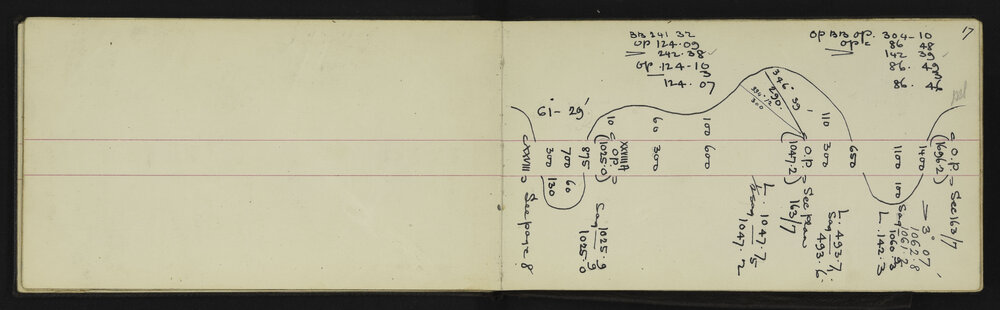 17
BB 241 32
OP 124·09
242·38
OP. 124-10
124·07
OP BB OP. 304-10
OP= 86 48
142 39
86·49
86·
61-29'
346° 39'
290·
334·12
300
10
60
100
110
XXVIII = See page 8
300 130
700 60
875
(1025·0)
= O.P. =
XXVIIIA
300
600
(1047·2)
= O.P. = See plan 163/7
300
650
1100 100
1400
(1696·2)
= O.P. = See 163/7
Sag 1025·9
·9
1025·0
L. 1047·7
Sag ·5
1047·2
L. 493·7
Sag
493·6
3° 07'
1062·8
1061·2
Sag
L. 142·3